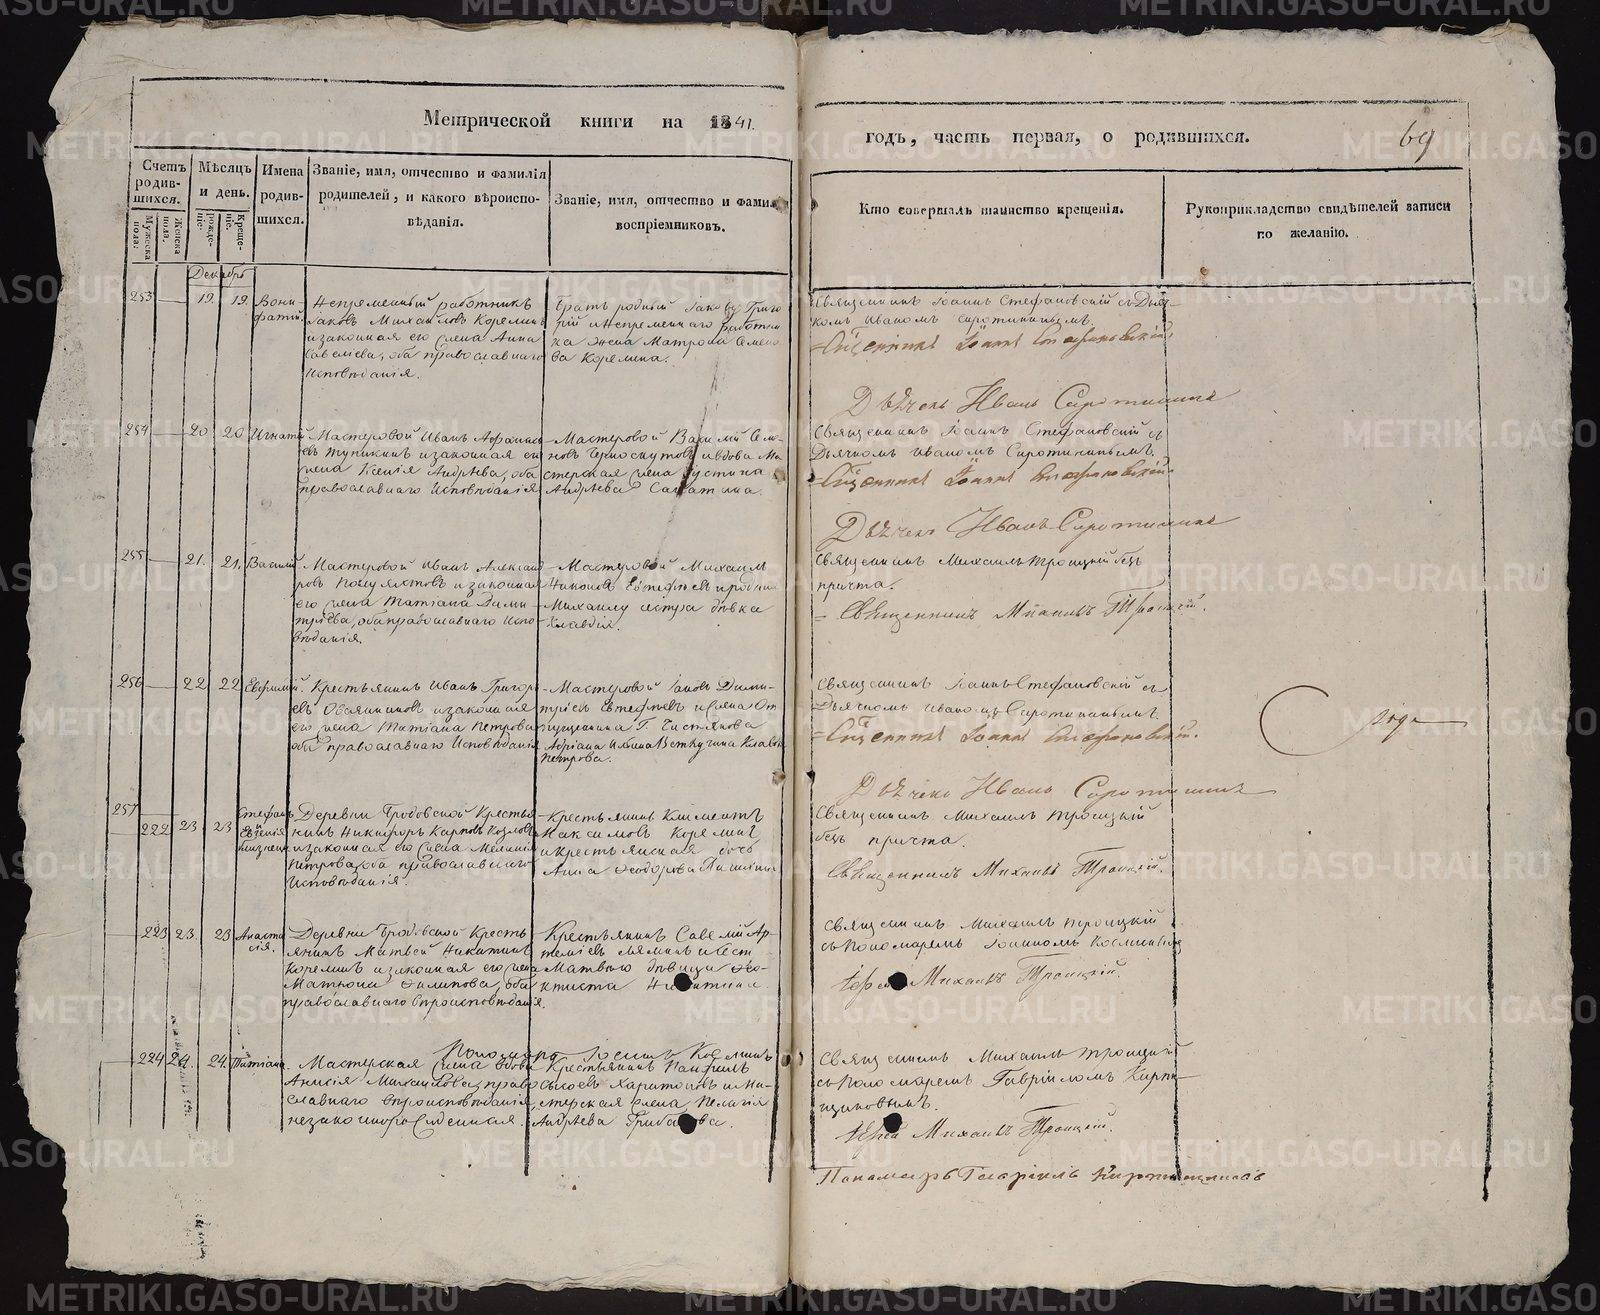 Метрической книги на 1841.
годъ, часть первая, о родившихся.
69
Счетъ родив-шихся.
Мужеска пола:
Женска пола.
Мѣсяцъ и день.
рожде-нія:
Креще-нія.
Имена родив-шихся.
Званіе, имя, отчество и фамилія
родителей, и какого вѣроиспо-
вѣданія.
Званіе, имя, отчество и фами
воспріемниковъ.
Кто совершалъ таинство крещенія.
Рукоприкладство свидѣтелей записи
по желанію.
Декабрь
253 19. 19. Вони-
фатій.
Непременный работникъ
Іаковъ Михайловъ Корелинъ
изаконная его жена Анна
Савелиева, оба православнаго
Исповѣданія.
Братъ родный Іакову Григо
рій инепременнаго работни
ка жена Матрона Семено
ва Корелина.
Священникъ Іоаннъ Стефановскій съ Дьяч-
комъ Иваномъ Сиротининымъ.
Священникъ Іоаннъ Стефановскій
Дьячекъ Иванъ Сиротининъ
254 20 20 Игнатій
Мастеровой Иванъ
изаконная его
жена Ксенія Андрѣева, оба
православнаго Исповѣданія
Мастеровой Василий Семе-
новъ Черноскутовъ ивдова Ма
стерская жена Устина
Андрѣева
Священникъ Іоаннъ Стефановскій съ
Дьячкомъ Иваномъ Сиротининымъ.
Священникъ Іоаннъ Стефановскій
Дьячекъ Иванъ Сиротининъ
255 21. 21. Василій
Мастеровой Иванъ Александ
ровъ изаконная
его жена Татіана Дими-
трѣева, оба православнаго Испо-
вѣданія.
Мастеровой Михаилъ
Никоновъ Евтефѣевъ иродная
Михаилу сестра дѣвка
Клавдія.
Священникъ Михаилъ Троицкій безъ
причта.
Священникъ Михаилъ Троицкій.
256 22 22 Евфимій.
Крестьянинъ Иванъ Григорь
евъ Овсянниковъ изаконная
его жена Татіана Петрова
оба православнаго Исповѣданія
Мастеровой Іаковъ Дими-
трѣевъ Евтефѣевъ ижена От
пущенника Г. Чистякова
Адріана Клавдія
Петрова.
Священникъ Іоаннъ Стефановскій съ
Дьячкомъ Иваномъ Сиротининымъ.
Священникъ Іоаннъ Стефановскій.
Дьячекъ Иванъ Сиротининъ
257 222 23 23 Стефанъ
Евгенія
близнецы
Деревни Бродовской Кресть
янинъ Никифоръ Карповъ Козловъ
изаконная его жена Меланія
Петрова, оба православнаго
Исповѣданія.
Крестьянинъ Климентъ
Максимовъ Корелинъ
икрестьянская дочь
Анна Феодорова
Священникъ Михаилъ Троицкій
безъ причта.
Священникъ Михаилъ Троицкій.
223 23. 23 Анаста
сія.
Деревни Бродовской Кресть
янинъ Матвей Никитинъ
Корелинъ изаконная его жена
Матрона Филипова, оба
православнаго вѣроисповѣданія.
Крестьянинъ Савелій Ар-
теміевъ Ляминъ исест
Матвею дѣвица Фео-
ктиста Никитина.
Священникъ Михаилъ Троицкій
съ Пономаремъ Іоанномъ Косминымъ
Іерей Михаилъ Троицкій.
Пономарь Косминъ
224 24. 24. Татіана.
Мастерская жена вдова
Анисія Михайлова, право
славнаго вѣроисповѣданія,
незаконнорожденная.
Крестьянинъ Панфилъ
Харитоновъ има-
стерская жена Пелагія
Андрѣева Грибанова.
Священникъ Михаилъ Троицкій
съ Пономаремъ Гавріиломъ Кирпи-
щиковымъ.
Іерей Михаилъ Троицкій.
Панамарь Гавріилъ Кирпищиковъ
METRIKI.GASO-URAL.RU